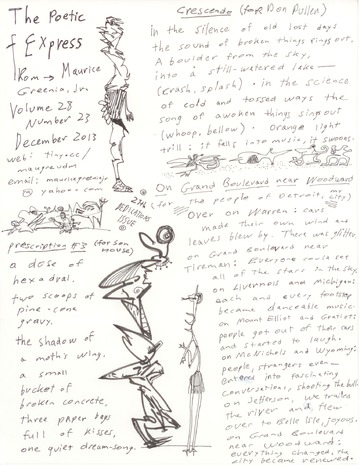 The Poetic
Express
From → Maurice
Greenia, Jr.
Volume 28
Number 23
December 2013
web: tiny.cc/
maugreudm
email: mauricegreeniajr
@ yahoo.com
DEDICATIONS
ISSUE
prescription #3 (for Son
House)
a dose of
hexadral.
two scoops of
pine-cone
gravy.
the shadow of
a moth's wing.
a small
bucket of
broken concrete.
three paper bags
full of kisses.
one quiet dreamsong.
Crescendo (for Don Pullen)
in the silence of old lost days
the sound of broken things rings out.
A boulder from the sky,
into a still-watered lake—
(crash, splash) • in the science
of cold and tossed ways the
song of awoken things sing out
(whoop, bellow) • orange light
trill: it falls into music, it swoons.
On Grand Boulevard near Woodward
(for the people of Detroit, my
city)
Over on Warren: cars
made their own wind and
leaves blew by. There was glitter.
on Grand Boulevard near
Tireman: Everyone could see
all of the stars in the sky.
on Livernois and Michigan:
each and every footstep
became danceable music.
on Mount Elliot and Gratiot:
people got out of their cars
and started to laugh.
on McNichols and Wyoming:
people, strangers even—
entered into fascinating
conversations, shooting the bull.
on Jefferson, we trailed
the river and flew
over to Belle Isle, joyous.
on Grand Boulevard
near Woodward:
everything changed, the
city became renewed.